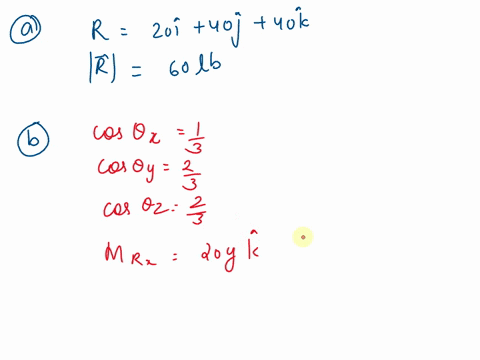 (a) R = 20î + 40ĵ + 40k̂
|R̂| = 60 lb
(b) cos θx = 1/3
cos θy = 2/3
cos θz = 2/3
M Rx = 20y k̂